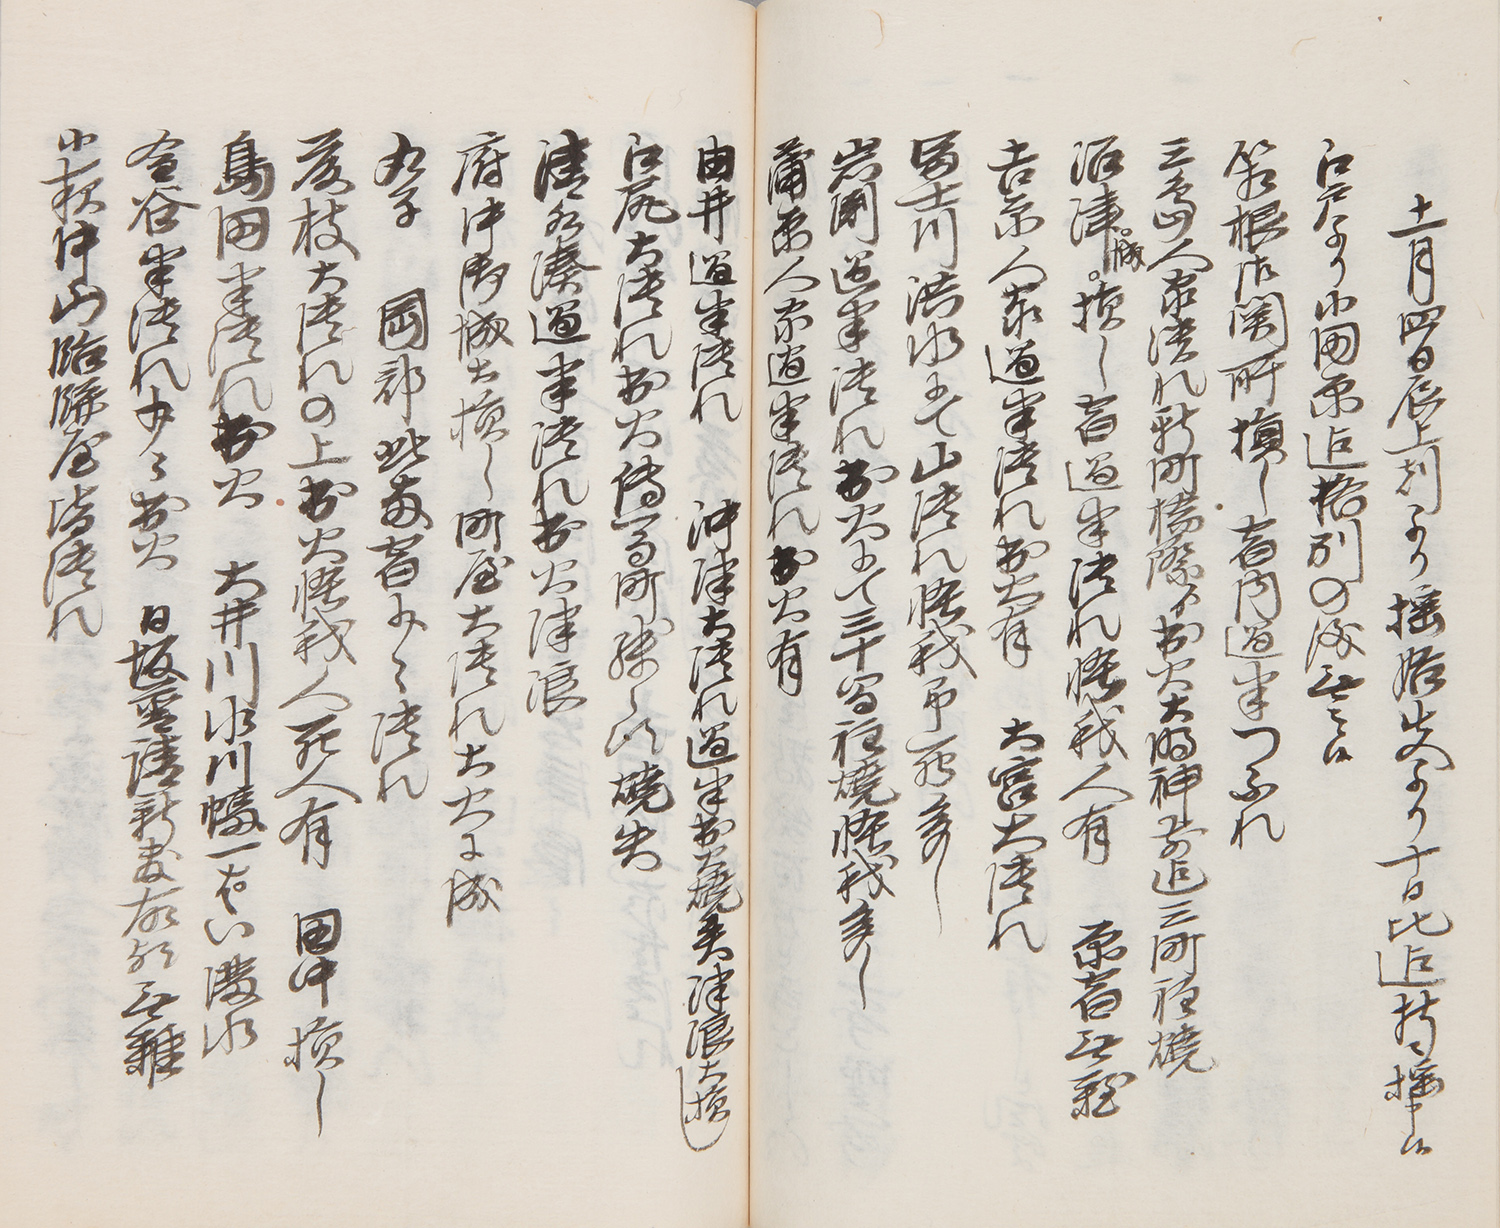 十一月四日辰上刻より揺始夫より十日比迄折々揺申候
江戸より小田原迄格別の儀無之候
箱根御関所損し宿内過半つふれ
三島人家潰れ新町橋際より出火大明神前迄三町程焼
沼津城損し宿過半潰れ怪我人有 原宿無難
吉原人家過半潰れ出火有 大宮大潰れ
冨士川渋水にて山潰れ怪我即死多し
岩渕過半潰れ出火にて三十間程焼怪我多し
蒲原人家過半潰れ出火有
由井過半潰れ 沖津大潰れ過半出火焼失津浪大損し
江尻大潰れ出火伝馬町残らす焼失
清水湊過半潰れ出火津浪
府中御城大損し町屋大潰れ大火に成
丸子 岡部此両宿少々潰れ
藤枝大潰れの上出火怪我人死人有 田中損し
島田半潰れ出火 大井川水川幅一はい満水
金谷半潰れ少々出火 日坂
小夜中山飴餅屋皆潰れ